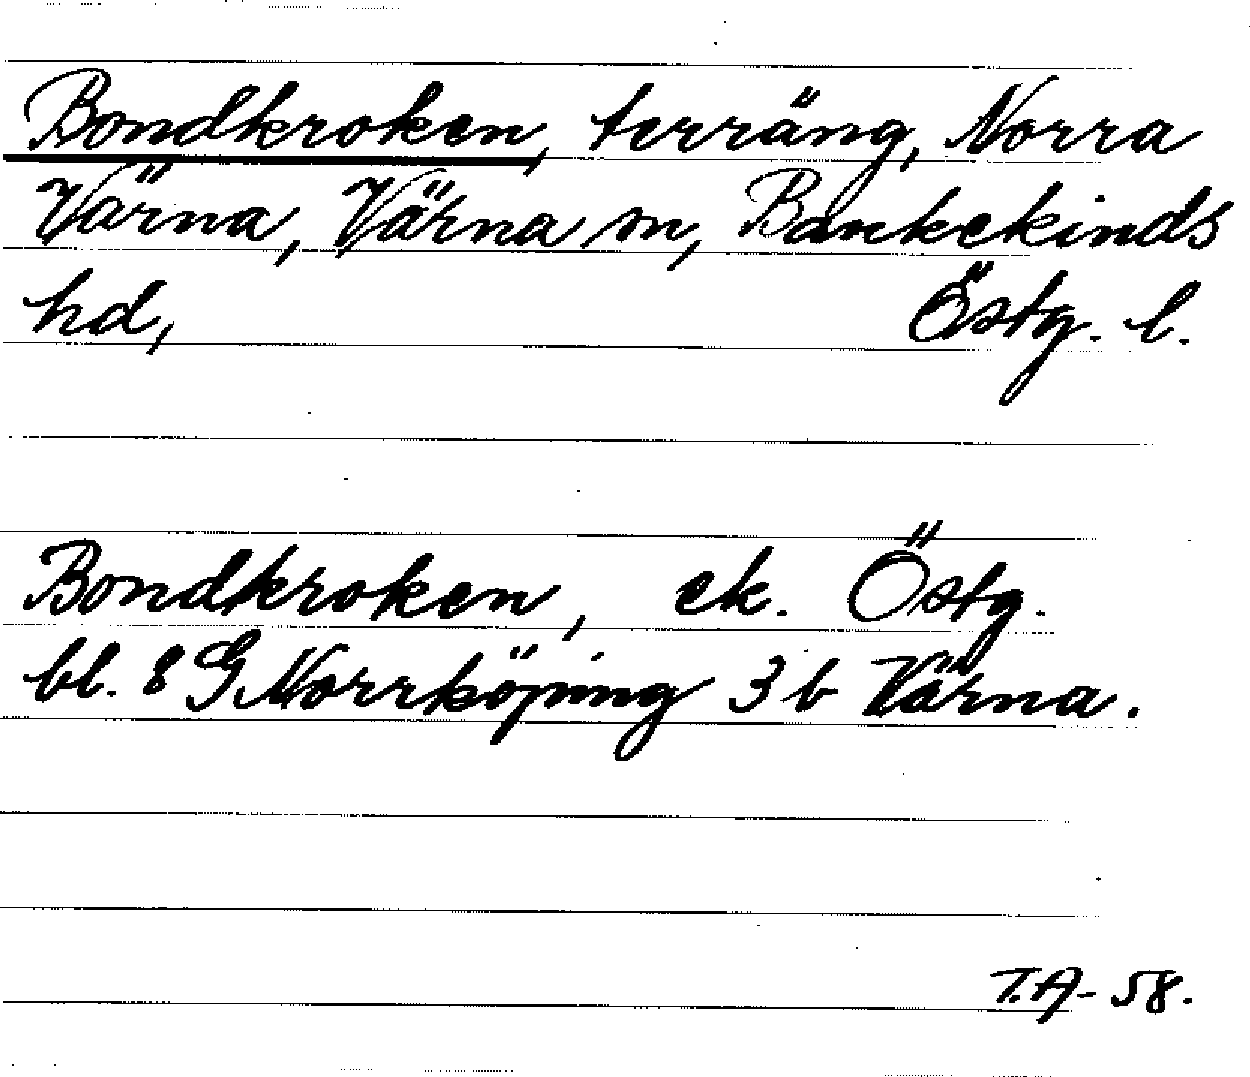 Bondkroken, terräng, Norra
Värna, Värna sn, Bankekinds
hd, Östg. l.
Bondkroken, ek. Östg.
bl. 8 G Norrköping 3 b Värna.
T.A- 58.